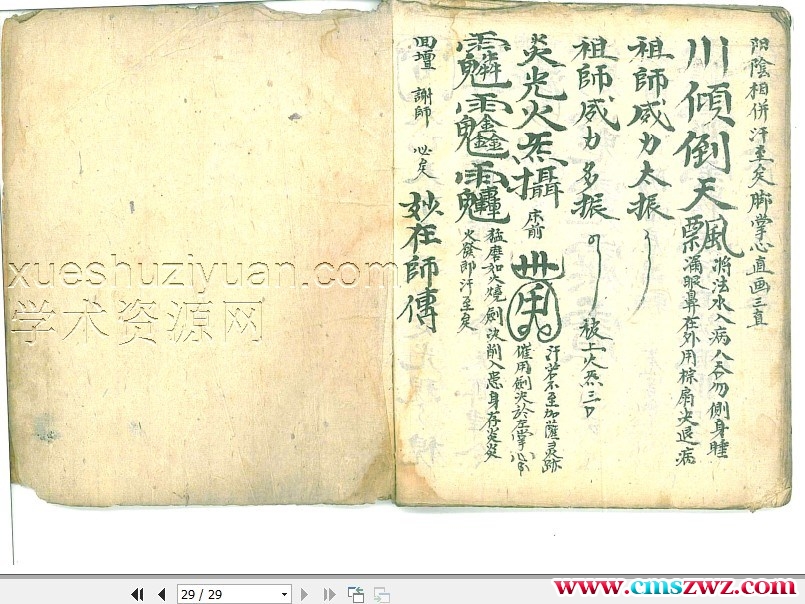 阳陰相併汗至矣脚掌心直画三直
川傾倒天飄
将法水入病人吞勿側身睡
漏眼鼻在外用棕扇尖退病
祖師威力太振
祖師威力多振
被上火炁三口
炎光火炁攝
床前
汗若不至加薩灵跡
催用劍決於左掌心
猛磨如火燒劍決削入患身存炎炎
火發即汗至矣
回壇 謝師 心矣
妙在師傳
xueshuziyuan.com
学术资源网
29 / 29
www.cmszwz.com